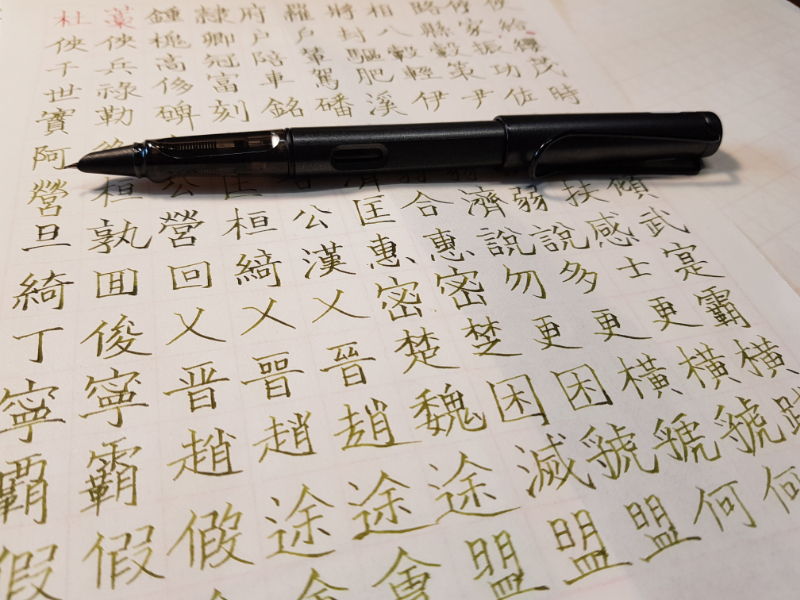 杜藁鍾隸府羅將相路俠俠
俠俠槐卿戶戶封八縣家給
千兵高冠陪輦驅轂轂振纓
世祿侈富車駕肥輕策功茂
實勒碑刻銘磻溪伊尹佐時
阿
營桓公匡
旦孰營桓公匡合濟弱扶傾
綺囬回綺漢惠惠說說感武
丁俊乂乂乂密密勿多士寔
寧寧晋晉晉楚楚更更更霸
覇霸趙趙趙魏困困橫橫橫
假假假途途途滅虢虢虢踐
會會盟盟盟何何